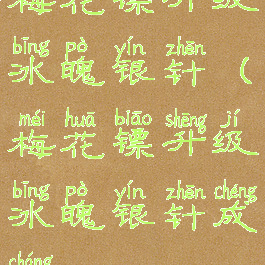 梅花镖升级
bīng pò yín zhēn
冰魄银针（
méi huā biāo shēng jí
梅花镖升级
bīng pò yín zhēn chéng
冰魄银针成
chóng